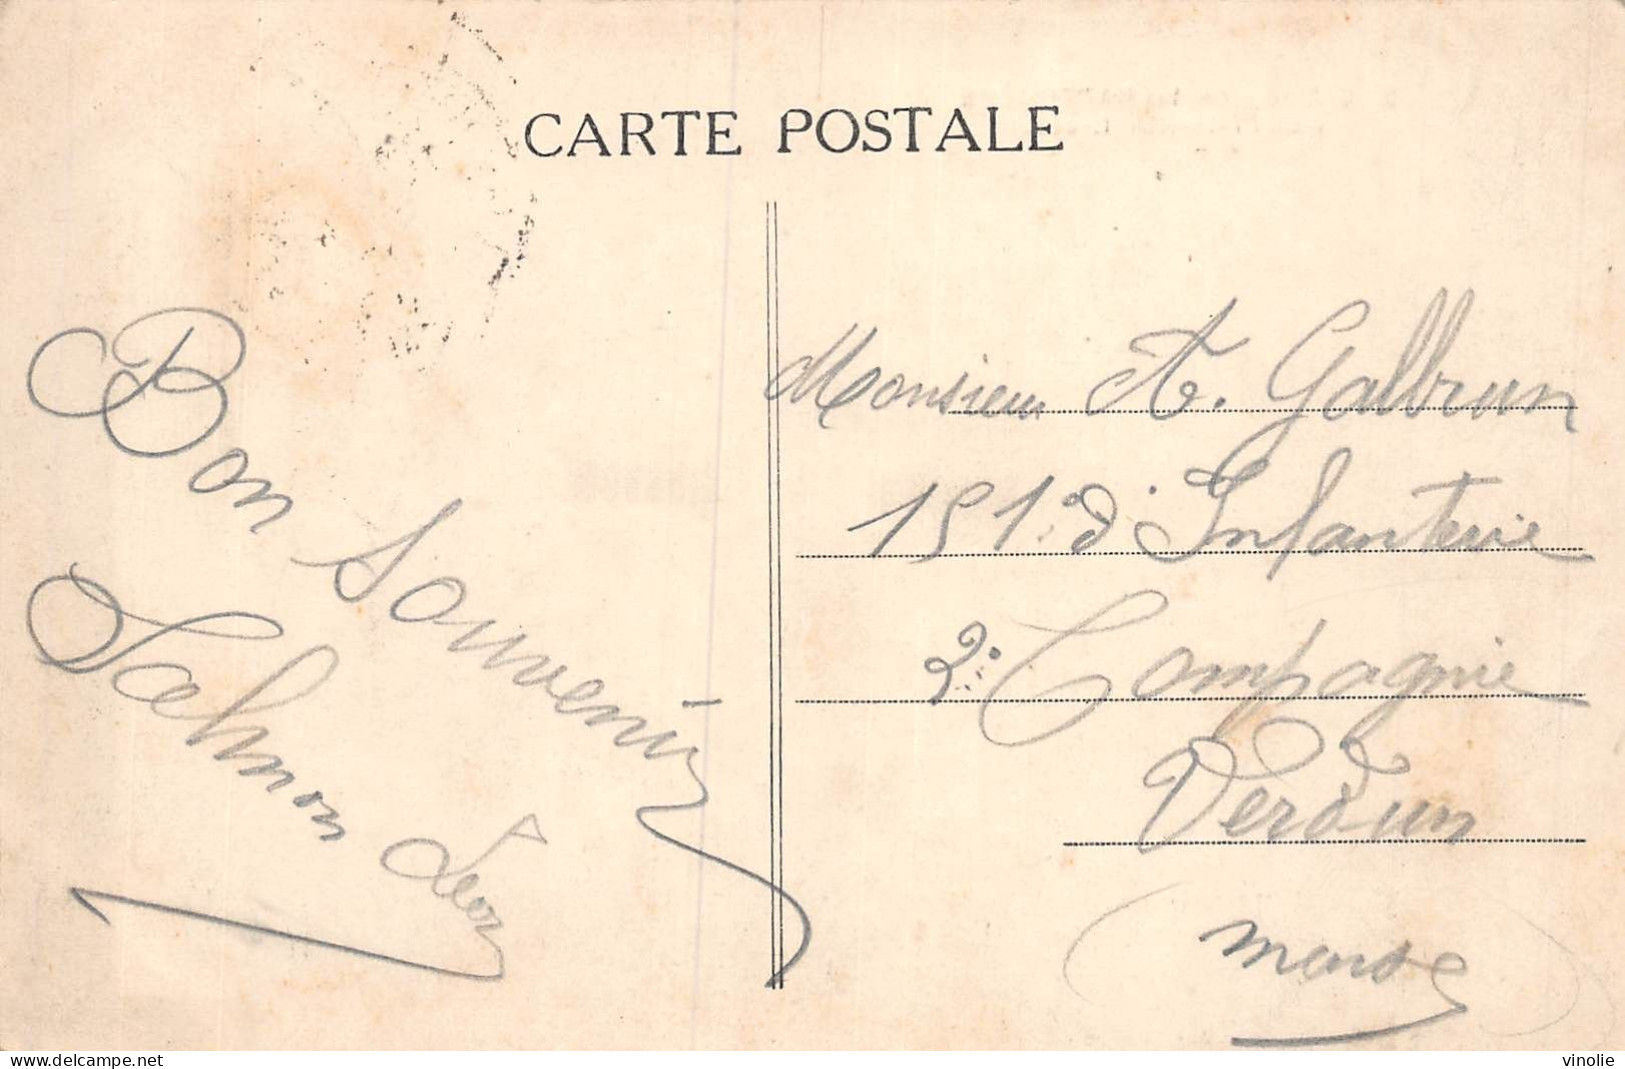 CARTE POSTALE
Bon Souvenir
Salmon Léon
Monsieur A. Galbrun
151e d'Infanterie
2e Compagnie
Verdun
(meuse)
delcampe.net
vinolie